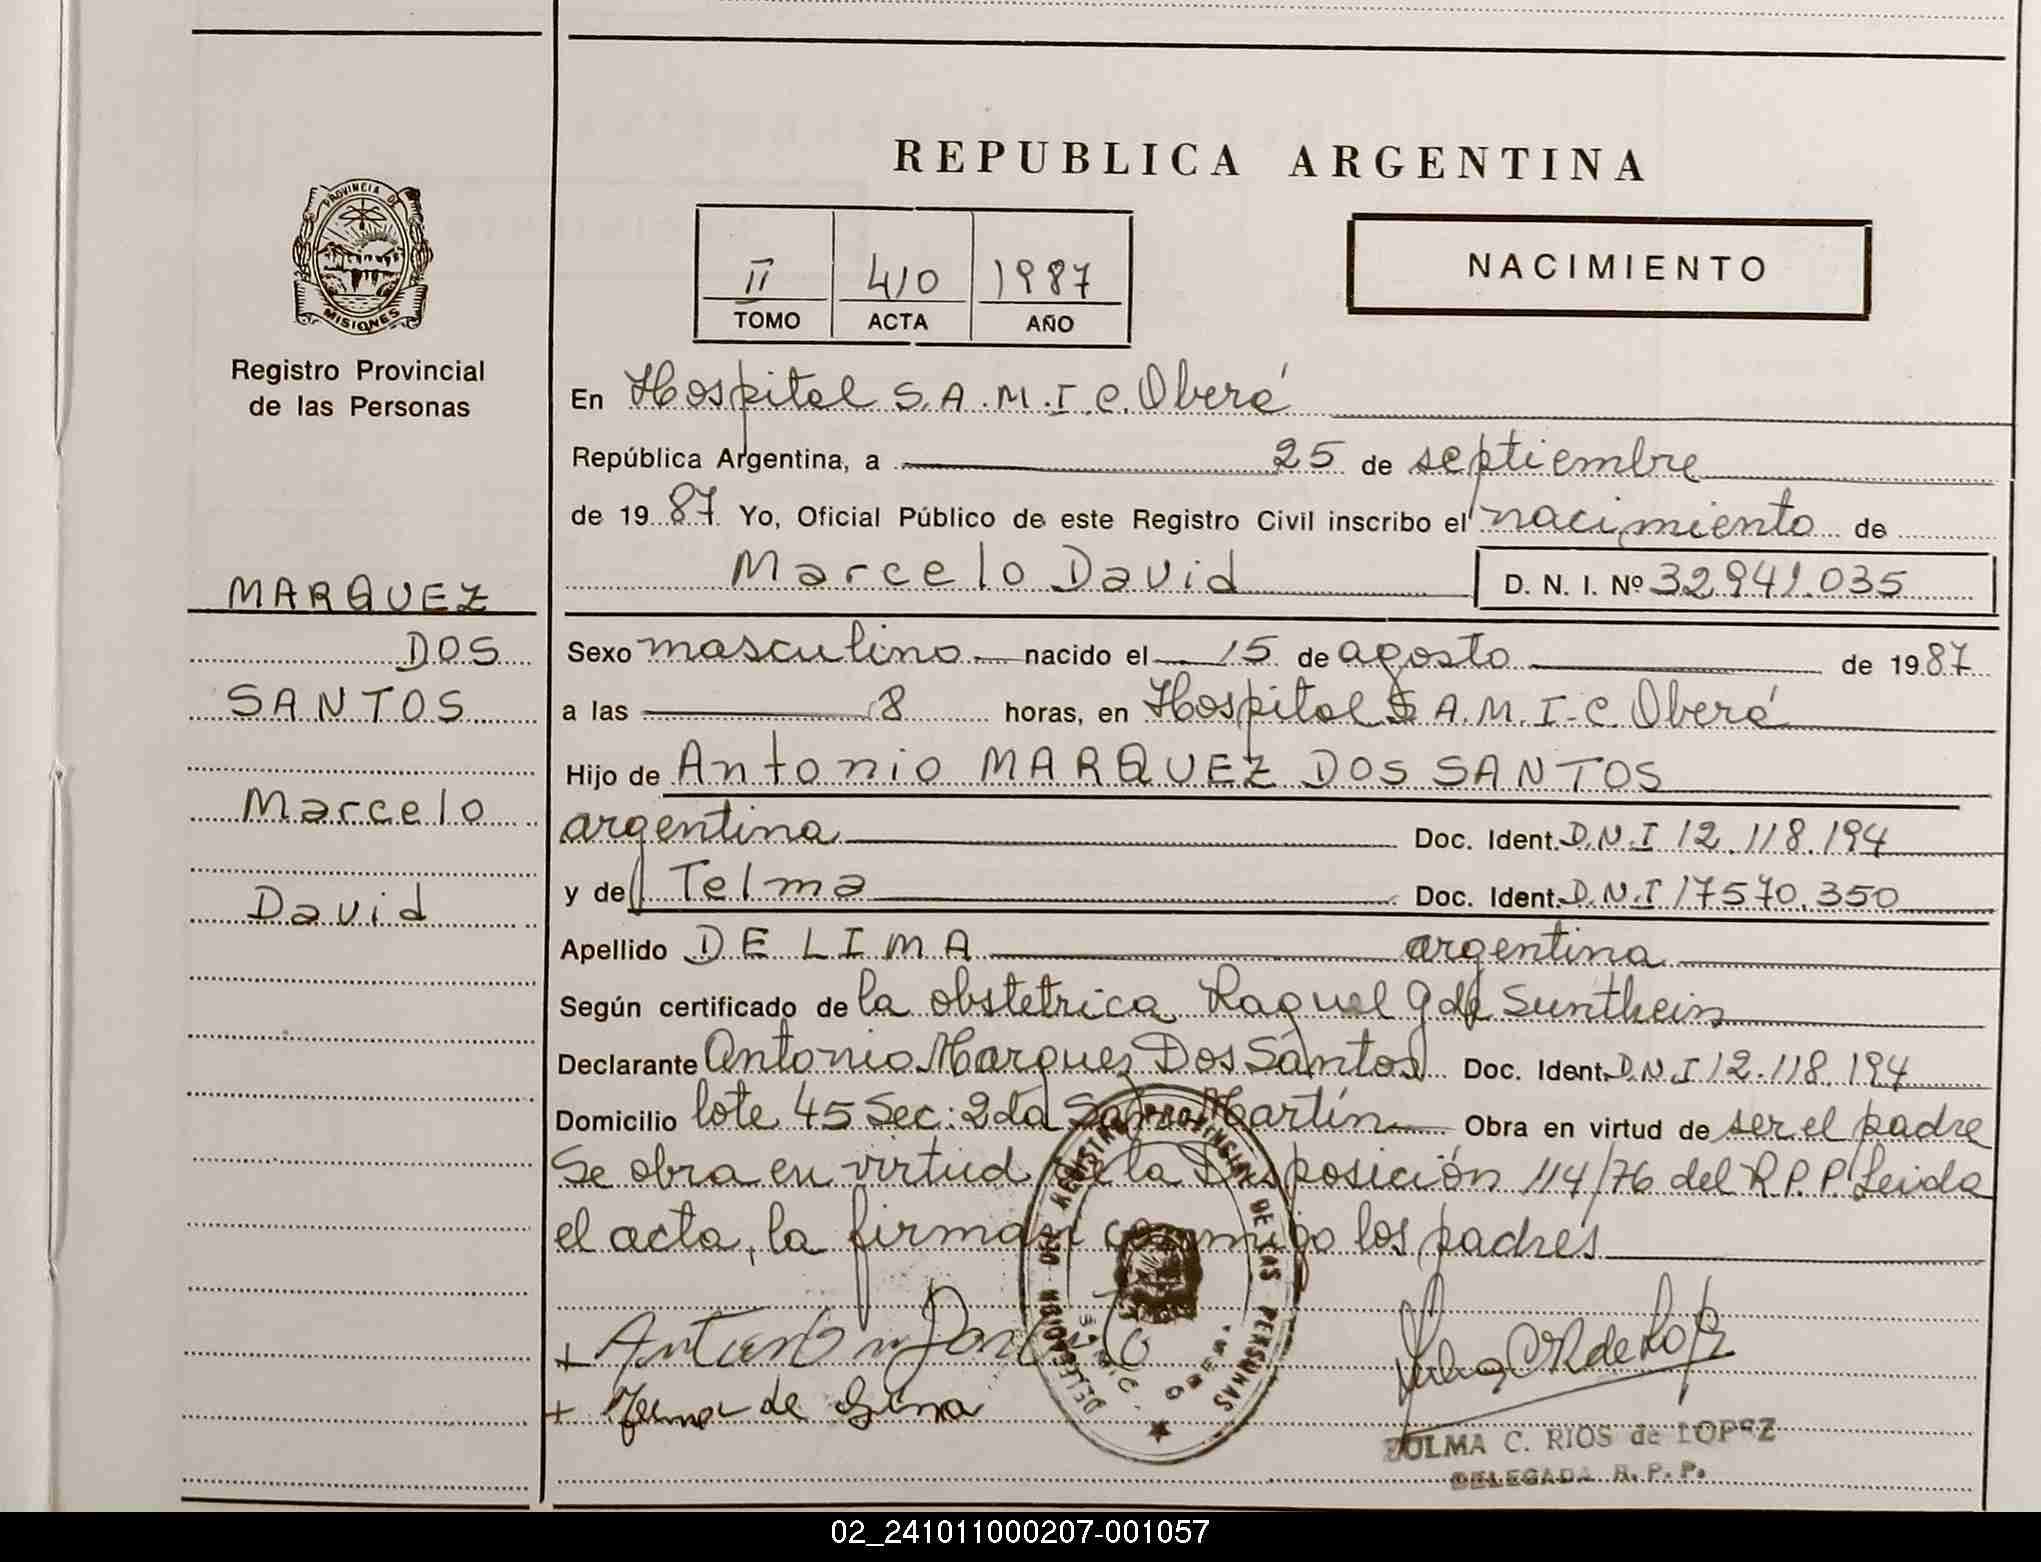 PROVINCIA DE
MISIONES
Registro Provincial
de las Personas
MARQUEZ
DOS
SANTOS
Marcelo
David
REPUBLICA ARGENTINA
II 410 1987
TOMO ACTA AÑO
NACIMIENTO
En Hospital S.A.M.I.C. Oberá
República Argentina, a 25 de septiembre
de 1987 Yo, Oficial Público de este Registro Civil inscribo el nacimiento de
Marcelo David D. N. I. Nº 32.941.035
Sexo masculino nacido el 15 de agosto de 1987
a las 8 horas, en Hospital S.A.M.I.C. Oberá
Hijo de Antonio MARQUEZ DOS SANTOS
argentina Doc. Ident. D.N.I 12.118.194
y de Telma Doc. Ident. D.N.I 17570.350
Apellido DE LIMA argentina
Según certificado de la obstetrica Raquel G de Sunthein
Declarante Antonio Marquez Dos Santos Doc. Ident. D.N.I 12.118.194
Domicilio lote 45 Sec: 2da San Martín Obra en virtud de ser el padre
Se obra en virtud de la Disposición 114/76 del R.P.P. Leida
el acta, la firman conmigo los padres
REGISTRO PROVINCIAL DE LAS PERSONAS
DELEGACION
ZULMA C. RIOS de LOPEZ
DELEGADA R. P. P.
02_241011000207-001057